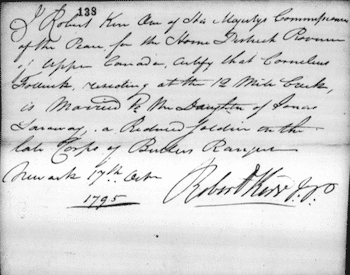 138
I Robert Kerr One of His Majestys Commissioners
of the Peace for the Home District Province
of Upper Canada, certify that Cornelius
residing at the 12 Mile Creek,
is Married to the Daughter of
a Reduced Soldier in the
late Corps of Butlers Rangers
Newark 17th Octr
1795
Robert Kerr J.P.